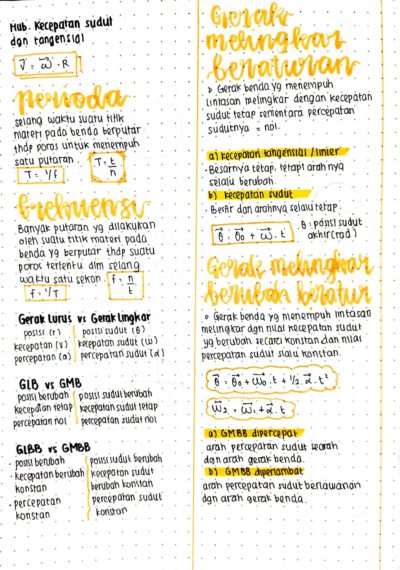 Hub. Kecepatan sudut
dgn tangensial
V = ω · R
Perioda
selang waktu suatu titik
materi pada benda berputar
thdp poros untuk menempuh
satu putaran.
T = t/n
T = 1/f
Frekuensi
Banyak putaran yg dilakukan
oleh suatu titik materi pada
benda yg berputar thdp suatu
poros tertentu dlm selang
waktu satu sekon.
f = n/t
f = 1/T
Gerak Lurus vs Gerak Lingkar
posisi (r) | posisi sudut (θ)
kecepatan (v) | kecepatan sudut (ω)
percepatan (a) | percepatan sudut (α)
GLB vs GMB
posisi berubah | posisi sudut berubah
kecepatan tetap | kecepatan sudut tetap
percepatan nol | percepatan sudut nol
GLBB vs GMBB
- posisi berubah | posisi sudut berubah
- kecepatan berubah | kecepatan sudut
konstan | berubah konstan
- percepatan | percepatan sudut
konstan | konstan
Gerak
melingkar
beraturan
Gerak benda yg menempuh
lintasan melingkar dengan kecepatan
sudut tetap sementara percepatan
sudutnya = nol.
a) kecepatan tangensial / linier
- Besarnya tetap, tetapi arahnya
selalu berubah.
b) kecepatan sudut
- Besar dan arahnya selalu tetap.
θ = θ₀ + ω · t
θ = posisi sudut
akhir (rad)
Gerak melingkar
berubah beratur
Gerak benda yg menempuh lintasan
melingkar dgn nilai kecepatan sudut
yg berubah secara konstan dan nilai
percepatan sudut slalu konstan.
θ = θ₀ + ω₀ · t + 1/2 · α · t²
ω₂ = ω₁ + α · t
a) GMBB dipercepat
arah percepatan sudut searah
dgn arah gerak benda.
b) GMBB diperlambat
arah percepatan sudut berlawanan
dgn arah gerak benda.